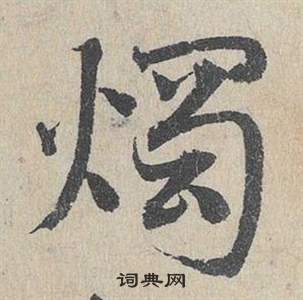 燭
词典网